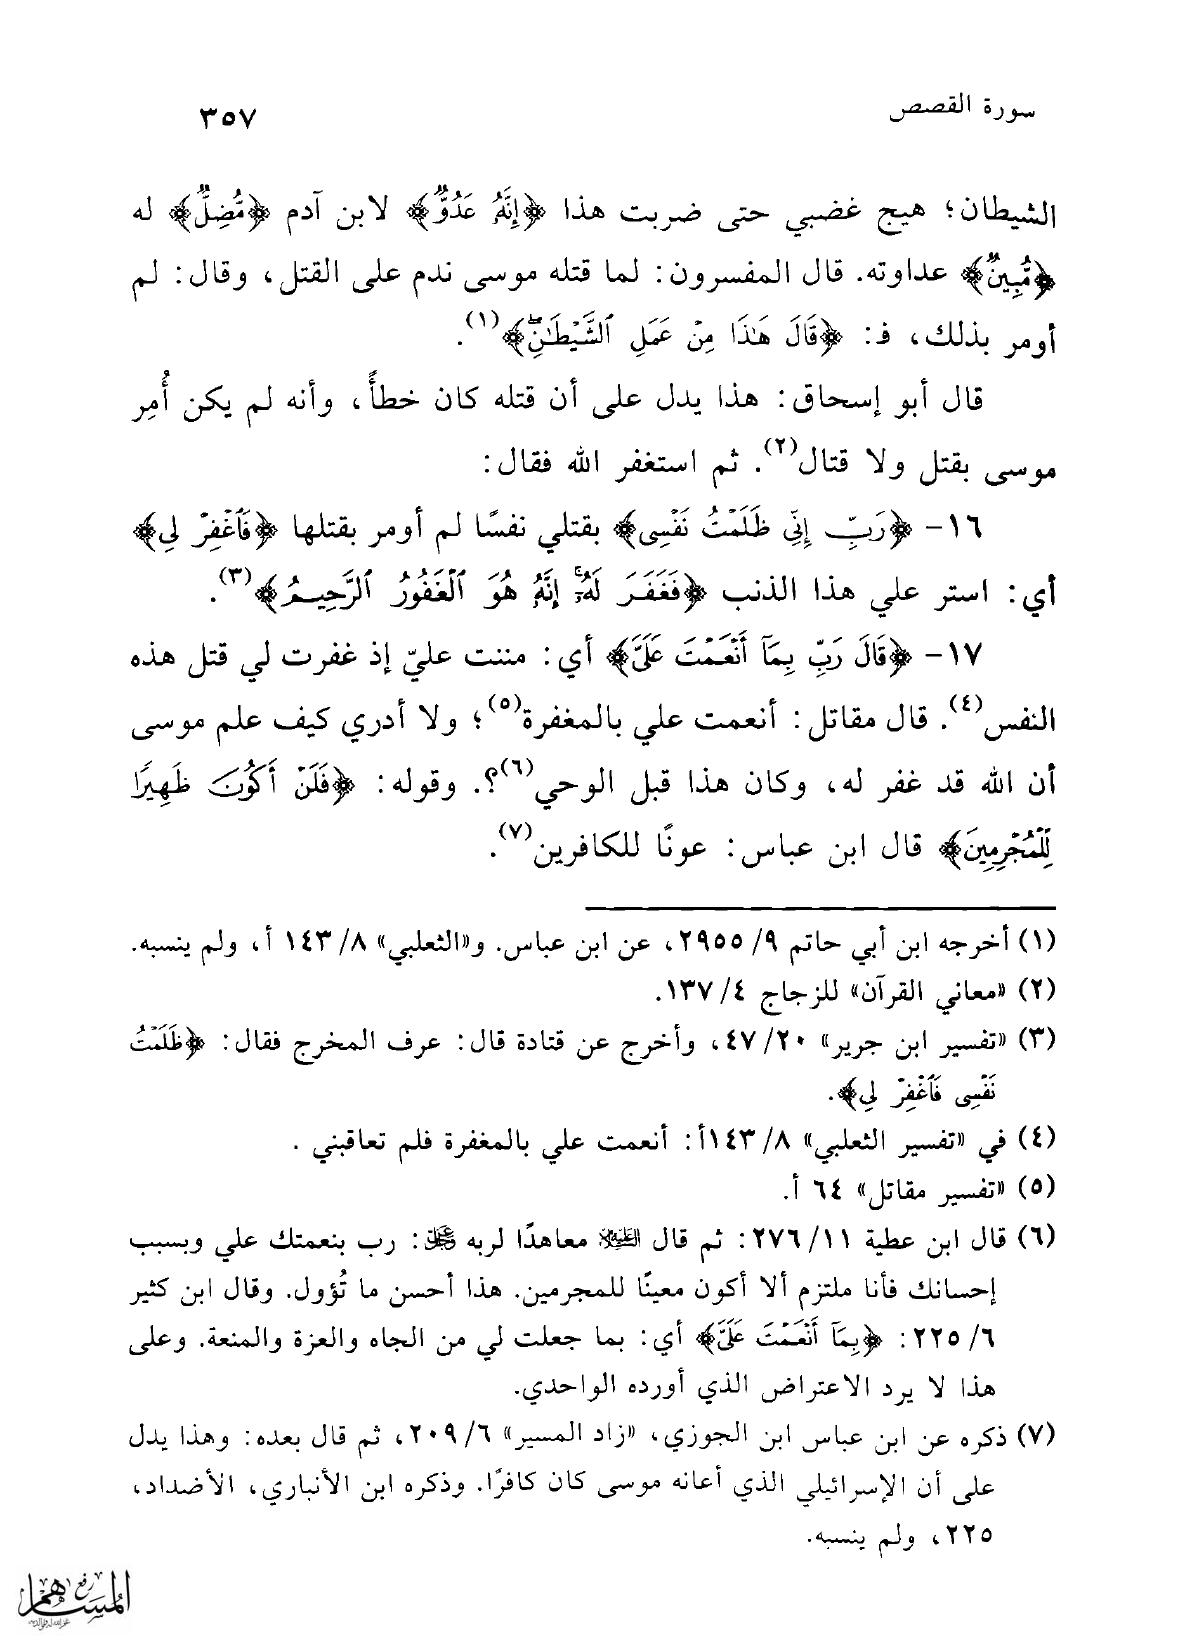 سورة القصص
٣٥٧
الشيطان؛ هيج غضبي حتى ضربت هذا ﴿إِنَّهُ عَدُوٌّ﴾ لابن آدم ﴿مُّضِلٌّ﴾ له
﴿مُّبِينٌ﴾ عداوته. قال المفسرون: لما قتله موسى ندم على القتل، وقال: لم
أومر بذلك، فـ: ﴿قَالَ هَٰذَا مِنْ عَمَلِ ٱلشَّيْطَٰنِۖ﴾(١).
قال أبو إسحاق: هذا يدل على أن قتله كان خطأً، وأنه لم يكن أُمِر
موسى بقتل ولا قتال(٢). ثم استغفر الله فقال:
١٦- ﴿رَبِّ إِنِّي ظَلَمْتُ نَفْسِي﴾ بقتلي نفسًا لم أومر بقتلها ﴿فَٱغْفِرْ لِي﴾
أي: استر علي هذا الذنب ﴿فَغَفَرَ لَهُۥٓۚ إِنَّهُۥ هُوَ ٱلْغَفُورُ ٱلرَّحِيمُ﴾(٣).
١٧- ﴿قَالَ رَبِّ بِمَآ أَنْعَمْتَ عَلَيَّ﴾ أي: مننت عليّ إذ غفرت لي قتل هذه
النفس(٤). قال مقاتل: أنعمت علي بالمغفرة(٥)؛ ولا أدري كيف علم موسى
أن الله قد غفر له، وكان هذا قبل الوحي(٦)؟. وقوله: ﴿فَلَنْ أَكُونَ ظَهِيرًا
لِّلْمُجْرِمِينَ﴾ قال ابن عباس: عونًا للكافرين(٧).
(١) أخرجه ابن أبي حاتم ٩/ ٢٩٥٥، عن ابن عباس. و«الثعلبي» ٨/ ١٤٣ أ، ولم ينسبه.
(٢) «معاني القرآن» للزجاج ٤/ ١٣٧.
(٣) «تفسير ابن جرير» ٢٠/ ٤٧، وأخرج عن قتادة قال: عرف المخرج فقال: ﴿ظَلَمْتُ
نَفْسِي فَٱغْفِرْ لِي﴾.
(٤) في «تفسير الثعلبي» ٨/ ١٤٣أ: أنعمت علي بالمغفرة فلم تعاقبني .
(٥) «تفسير مقاتل» ٦٤ أ.
(٦) قال ابن عطية ١١/ ٢٧٦: ثم قال عليه السلام معاهدًا لربه عز وجل: رب بنعمتك علي وبسبب
إحسانك فأنا ملتزم ألا أكون معينًا للمجرمين. هذا أحسن ما تُؤول. وقال ابن كثير
٦/ ٢٢٥: ﴿بِمَآ أَنْعَمْتَ عَلَيَّ﴾ أي: بما جعلت لي من الجاه والعزة والمنعة. وعلى
هذا لا يرد الاعتراض الذي أورده الواحدي.
(٧) ذكره عن ابن عباس ابن الجوزي، «زاد المسير» ٦/ ٢٠٩، ثم قال بعده: وهذا يدل
على أن الإسرائيلي الذي أعانه موسى كان كافرًا. وذكره ابن الأنباري، الأضداد،
٢٢٥، ولم ينسبه.